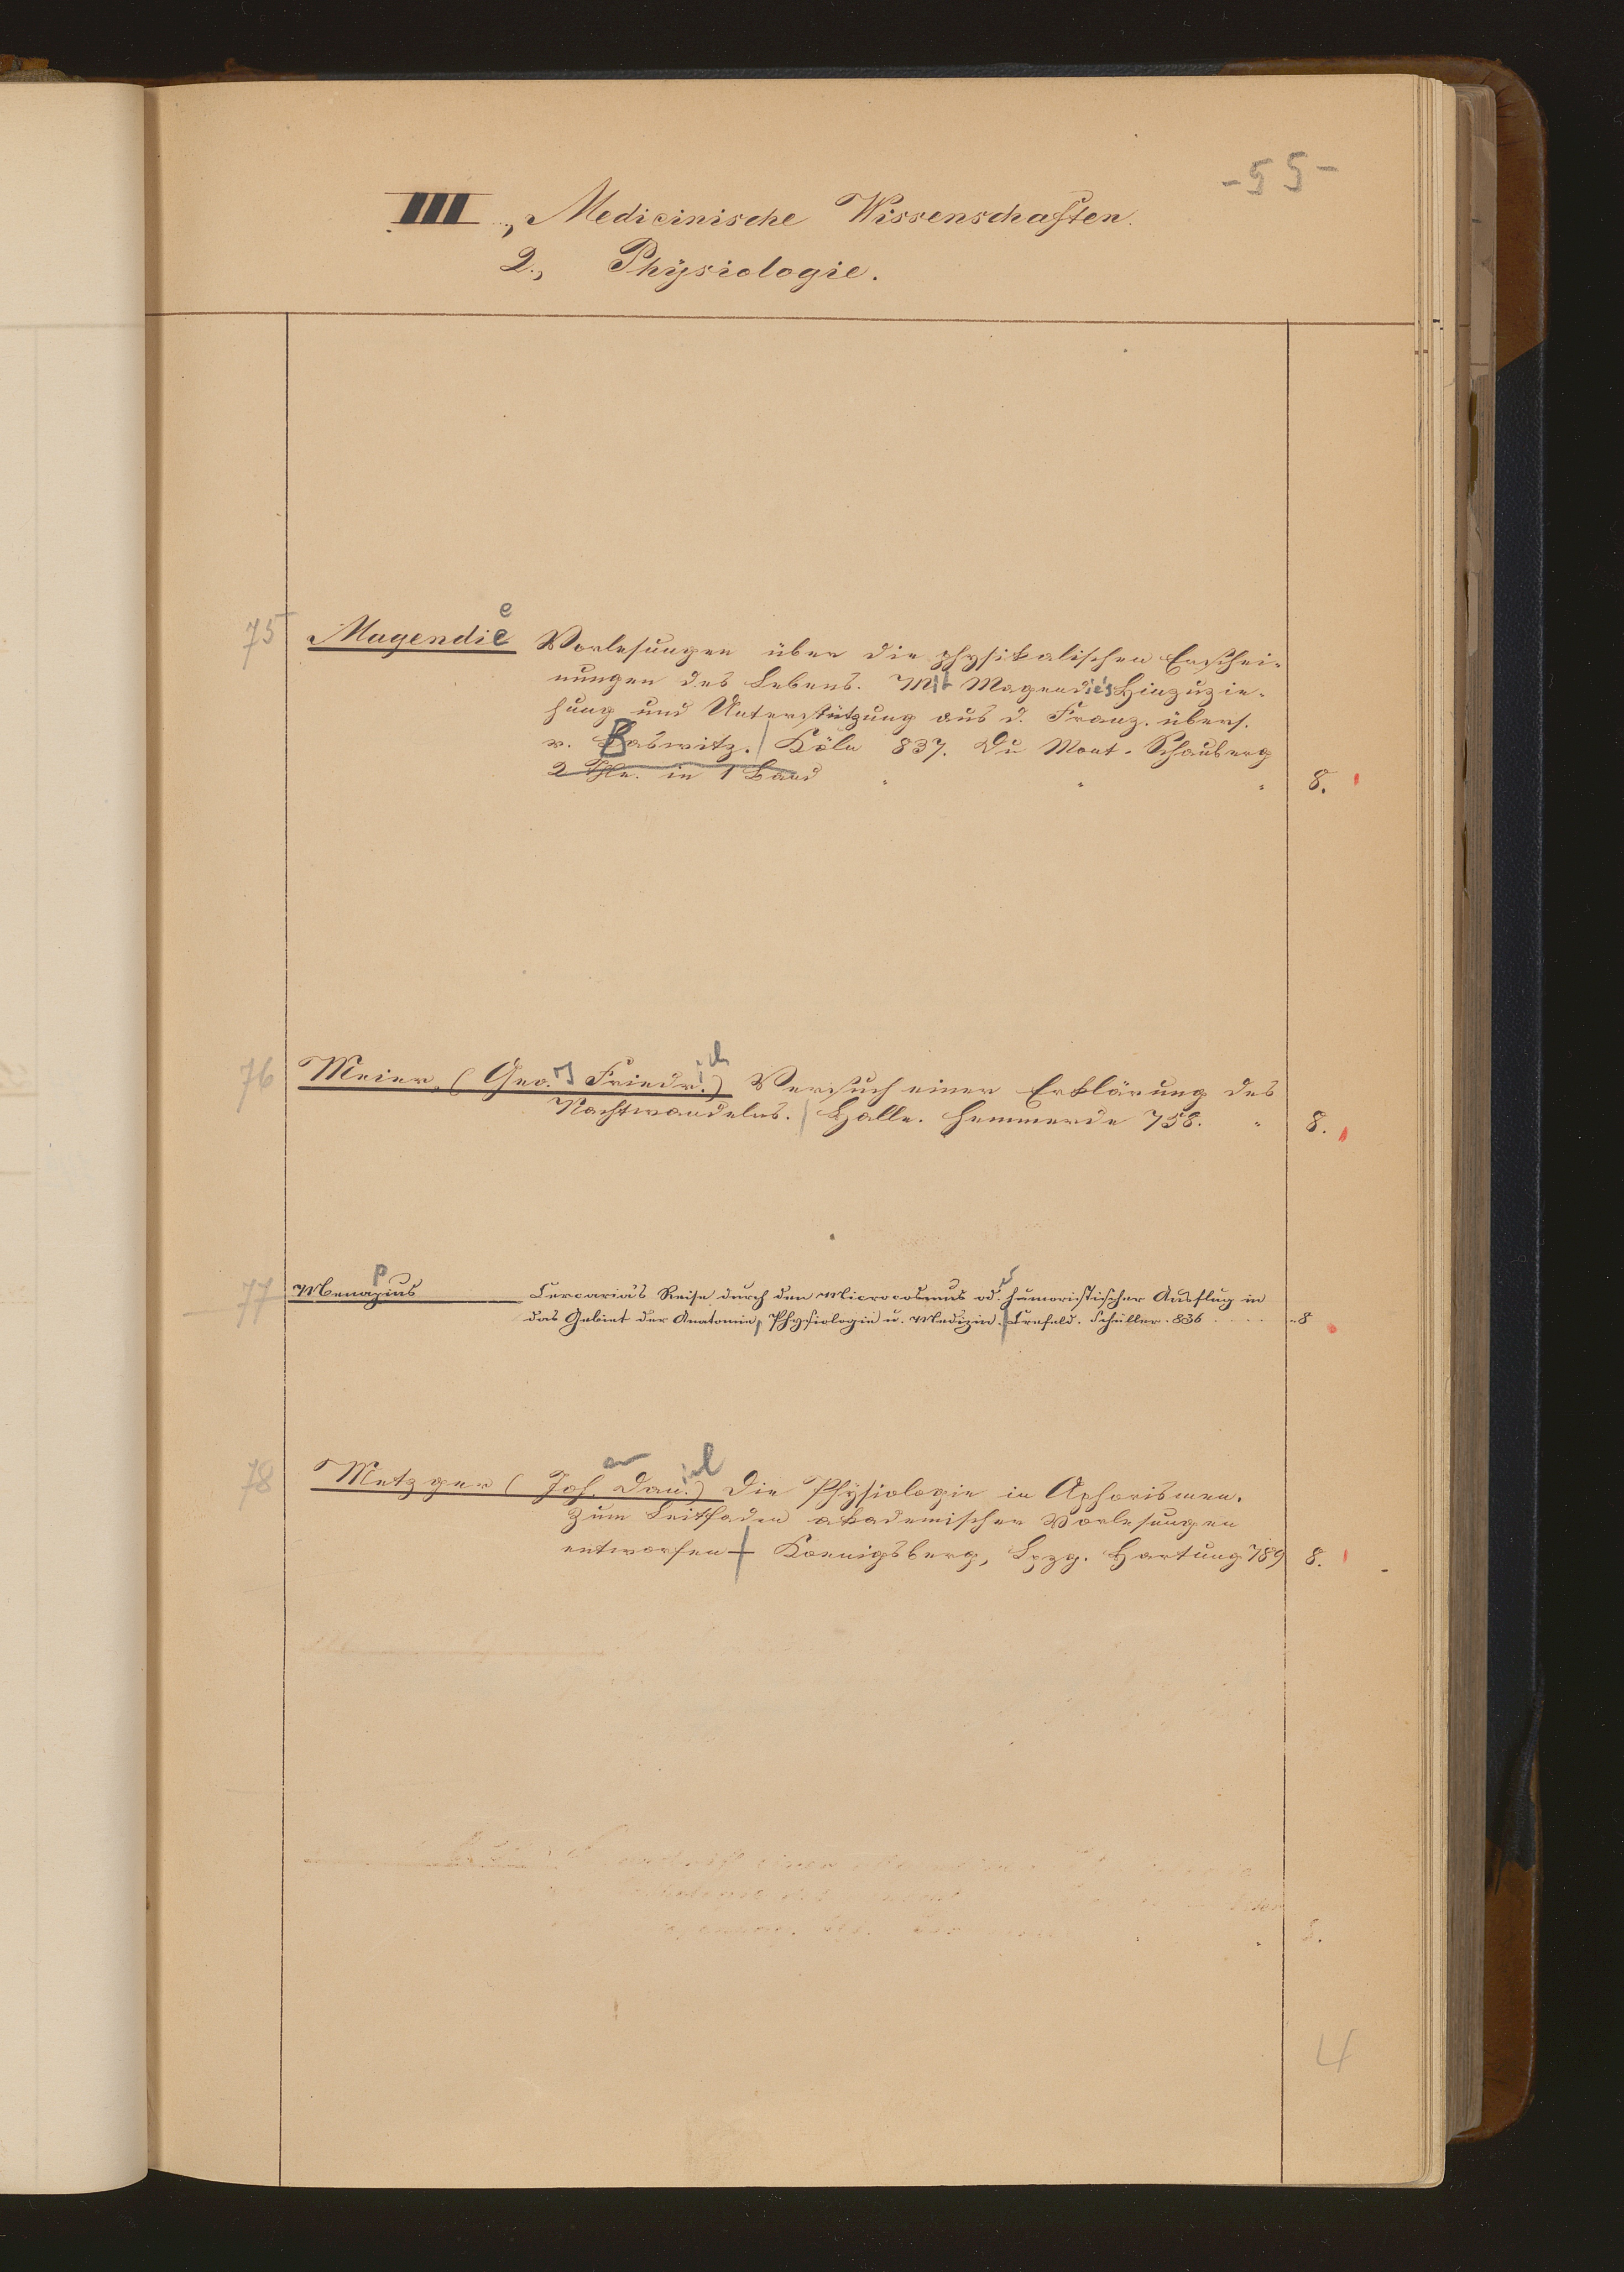 -55-
III., Medicinische Wissenschaften.
2., Physiologie.
75 Magendie Vorlesungen über die physikalischen Erschei-
nungen des Lebens. Mit Magendie's Hinzuzie-
hung und Unterstützung aus d. Franz. übers.
v. Baswitz. Köln 837. Du Mont-Schauberg
2 Thle. in 1 Band 8.
76 Meier, (Geo. Friedr.) Versuch einer Erklärung des
Nachtwandelns. Halle. Hemmerde 758. 8.
77 Menapius Cercaria's Reise durch den Microcosmus od. humoristischer Ausflug in
das Gebiet der Anatomie, Physiologie u. Medizin. Crefeld. Schüller. 836 . . . . 8
78 Metzger (Joh. Dan.) Die Physiologie in Aphorismen.
Zum Leitfaden akademischer Vorlesungen
entworfen Koenigsberg, Lpzg. Hartung 789 8.
8.
4